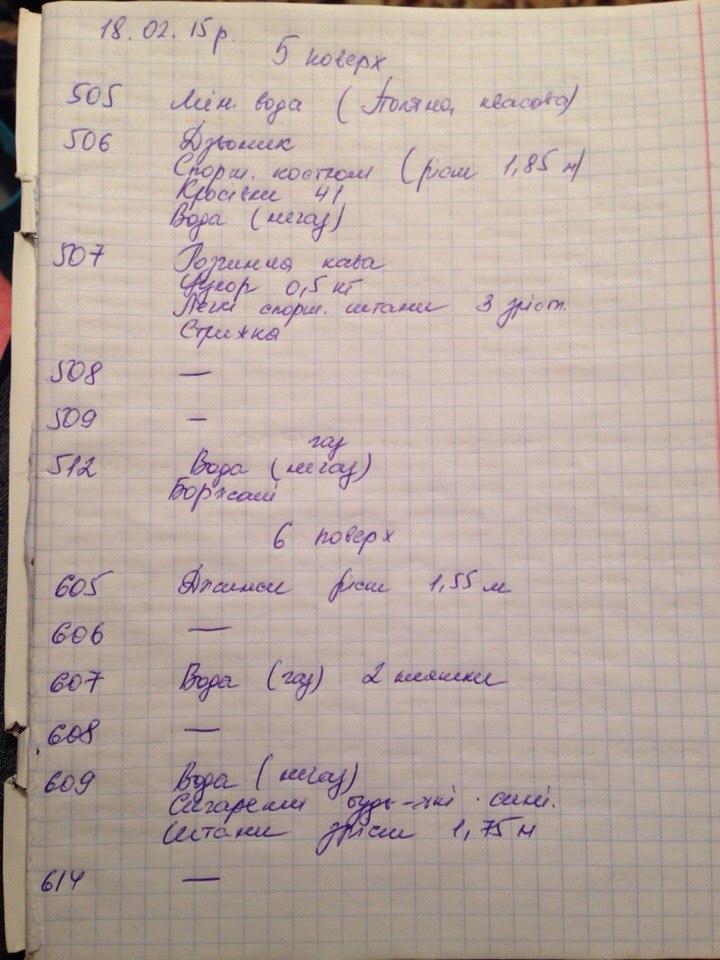 18.02.15р.
5 поверх
505 Мін. вода (Поляна, квасова)
506 Дзвоник
Спорт. костюм (ріст 1,85 м)
Кросівки 41
Вода (негаз)
507 Розчинна кава
Цукор 0,5 кг
Легкі спорт. штани 3 зріст.
Стрижка
508 —
509 —
газ
512 Вода (негаз)
Боржомі
6 поверх
605 Джинси ріст 1,55 м
606 —
607 Вода (газ) 2 пляшки
608 —
609 Вода (негаз)
Сигарети будь-які сині.
Штани зріст 1,75 м
614 —